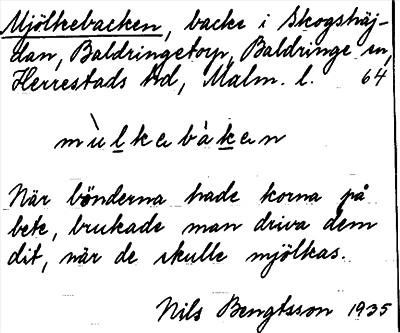 Mjölkebacken, backe i Skogshäj-
dan, Baldringetorp, Baldringe sn,
Herrestads hd, Malm. l. 64
mùlkebàken
När bönderna hade korna på
bete, brukade man driva dem
dit, när de skulle mjölkas.
Nils Bengtsson 1935